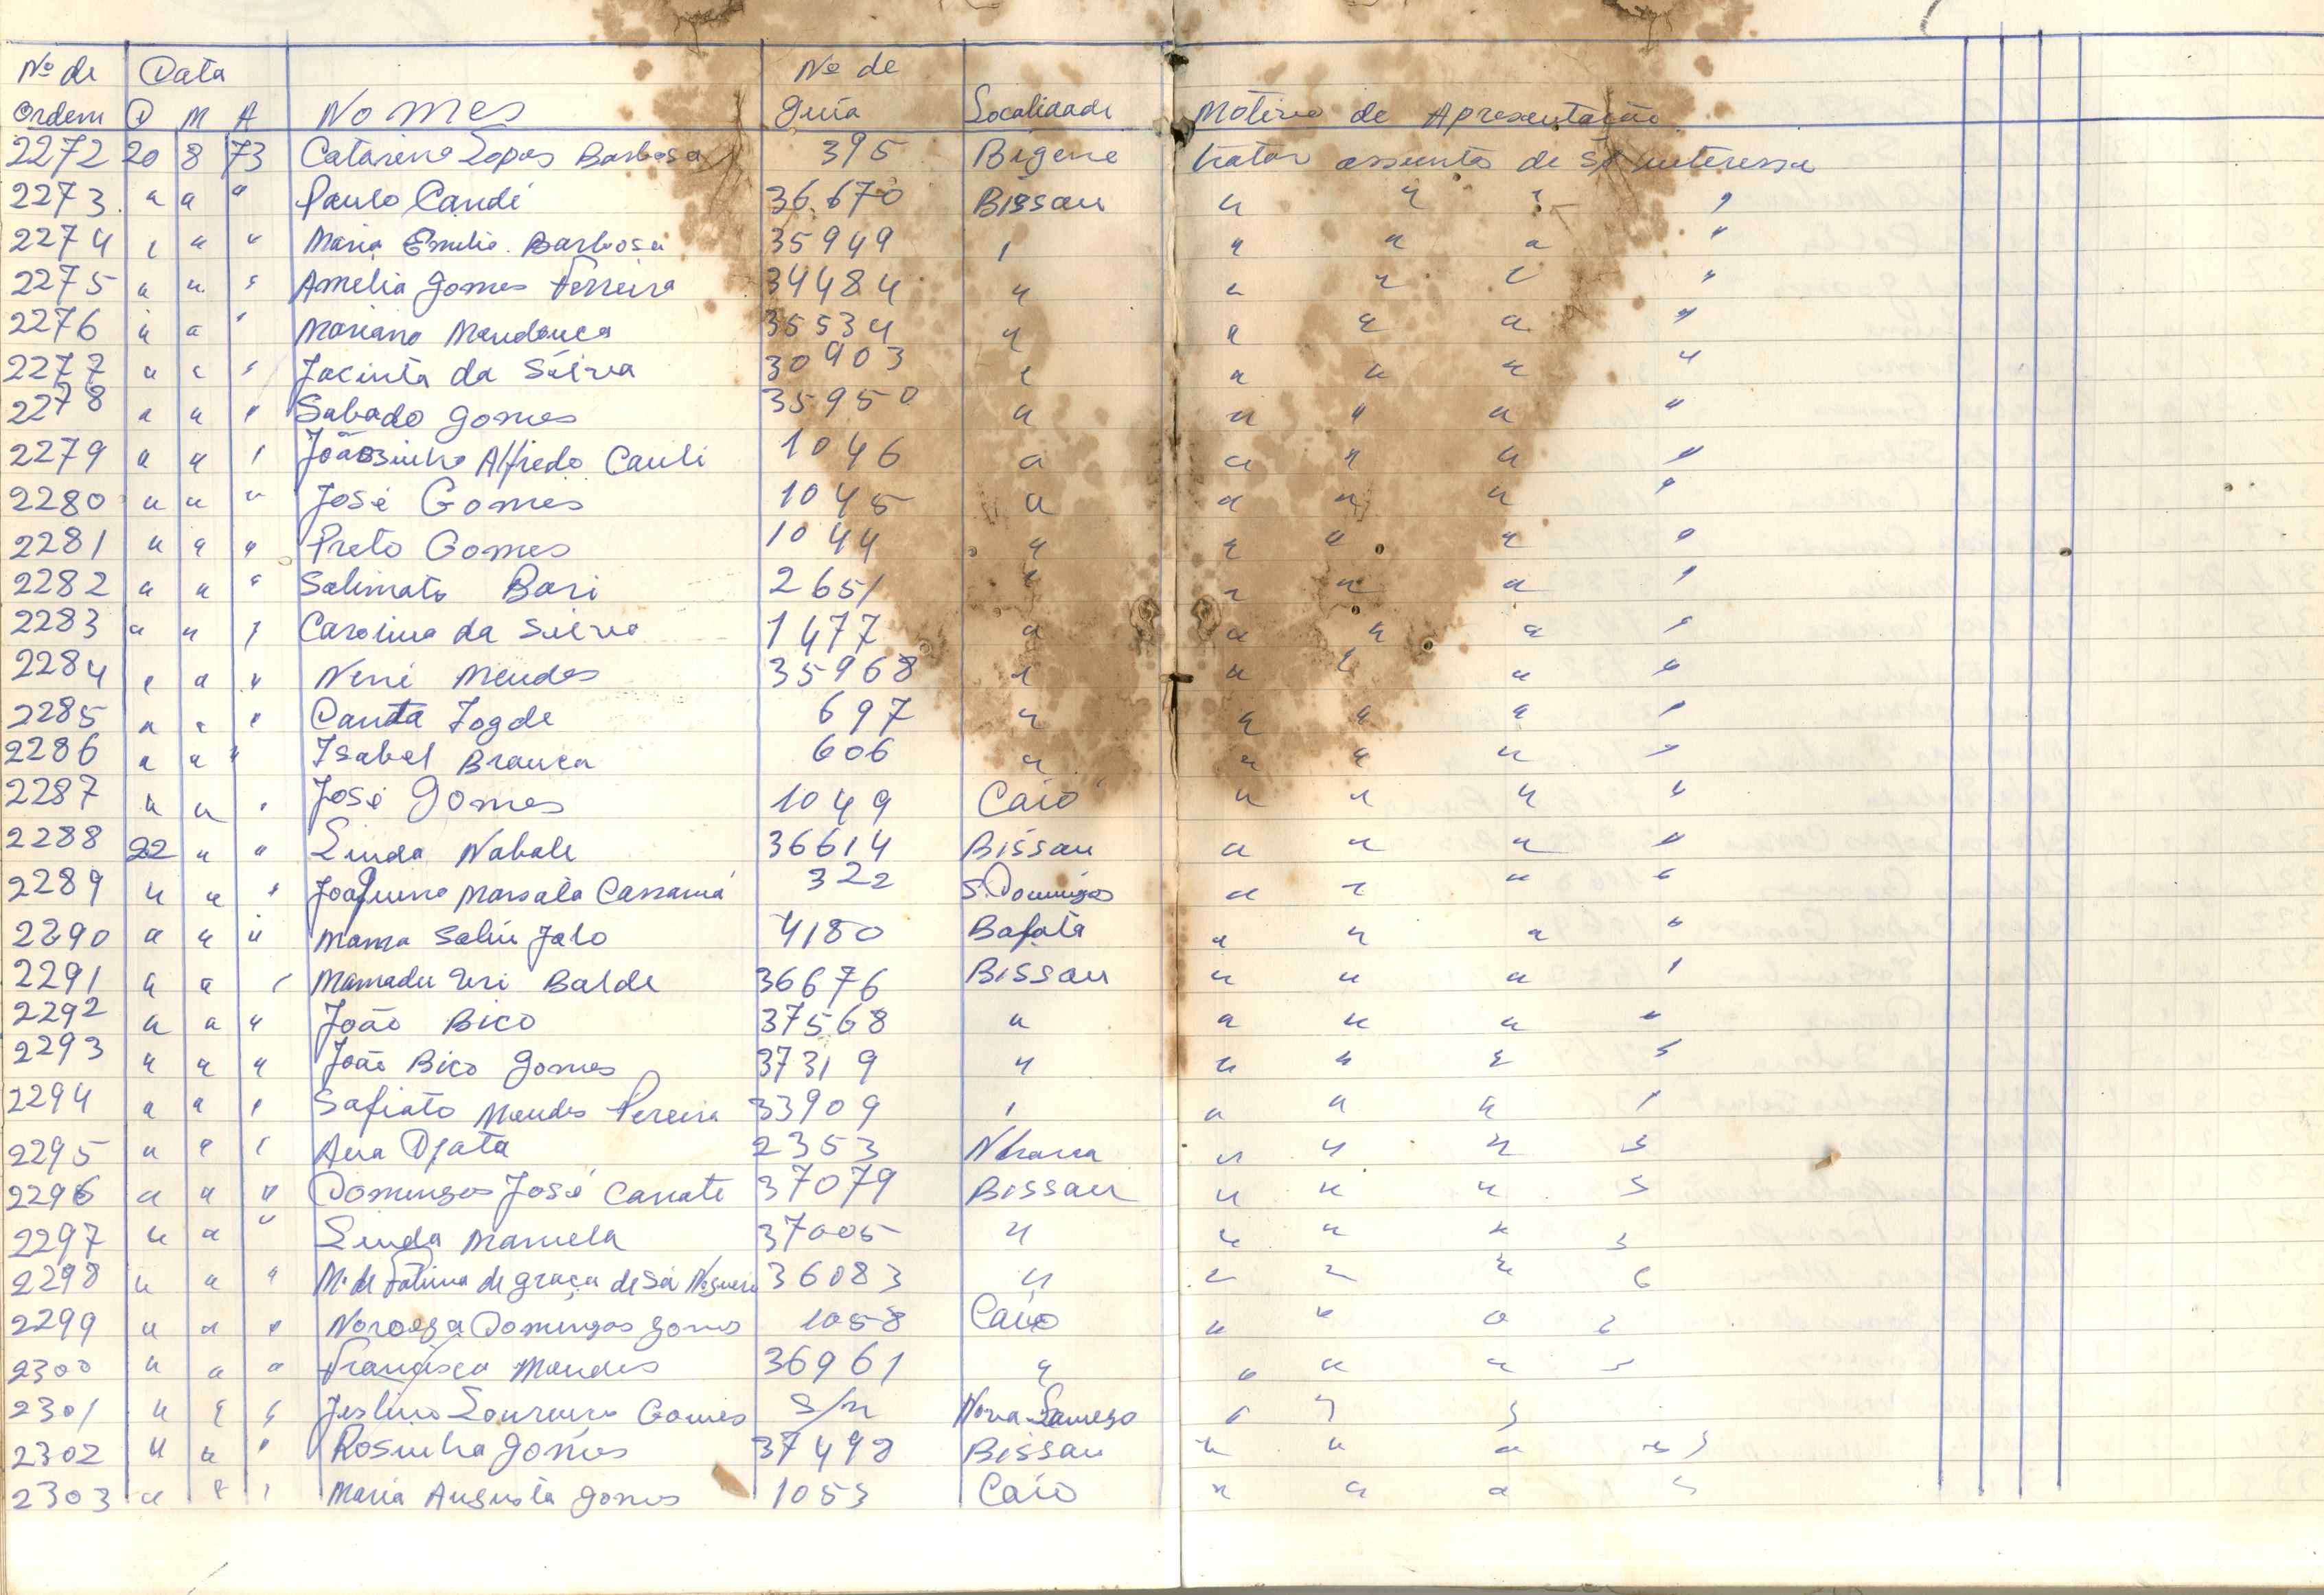 Nº de Data Nº de
Ordem D M A Nomes Guia Localidade Motivo de Apresentação
2272 20 8 73 Catarina Lopes Barbosa 395 Bigene tratar assunto de s/ interesse
2273 " " " Paulo Candé 36.670 Bissau " " " "
2274 " " " Maria Emilia Barbosa 35949 " " " " "
2275 " " " Amelia Gomes Ferreira 34484 " " " " "
2276 " " " Mariano Mendonca 35534 " " " " "
2277 " " " Jacinta da Silva 30903 " " " " "
2278 " " " Sabado Gomes 35950 " " " " "
2279 " " " Joãosinho Alfredo Cauli 1046 " " " " "
2280 " " " José Gomes 1045 " " " " "
2281 " " " Preto Gomes 1044 " " " " "
2282 " " " Salimato Bari 2651 " " " " "
2283 " " " Carolina da Silva 1477 " " " " "
2284 " " " Nené Mendes 35968 " " " " "
2285 " " " Canta Jogde 697 " " " " "
2286 " " " Isabel Branca 606 " " " " "
2287 " " " José Gomes 1049 Caió " " " "
2288 22 " " Linda Nabale 36614 Bissau " " " "
2289 " " " Joaquina Marsala Cassamá 322 S. Domingos " " " "
2290 " " " Mama Saliu Jalo 4180 Bafatá " " " "
2291 " " " Mamadu Balde 36676 Bissau " " " "
2292 " " " João Bico 37568 " " " " "
2293 " " " João Bico Gomes 37319 " " " " "
2294 " " " Safiato Mendes Pereira 33909 " " " " "
2295 " " " Djata 2353 Nhacra " " " "
2296 " " " Domingos José Canate 37079 Bissau " " " "
2297 " " " Linda Manuela 37005 " " " " "
2298 " " " Mª de Fátima de Graça de Sá Nogueira 36083 " " " " "
2299 " " " Noroega Domingos Gomes 1058 Caió " " " "
2300 " " " Francisca Mendes 36961 " " " " "
2301 " " " Loureiro Gomes s/n Nova Lamego " " "
2302 " " " Rosinha Gomes 37498 Bissau " " " "
2303 " " " Maria Augusta Gomes 1053 Caió " " " "